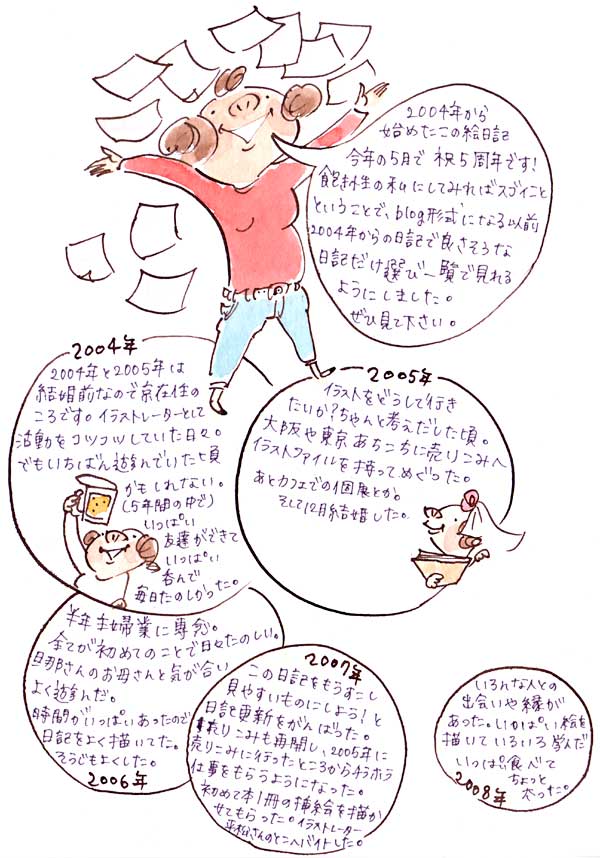 2004年から
始めたこの絵日記
今年の5月で祝5周年です!
飽き性の私にしてみればスゴイこと
ということで、blog形式になる以前
2004年からの日記で良さそうな
日記だけ選び一覧で見れる
ようにしました。
ぜひ見て下さい。
2004年
2004年と2005年は
結婚前なので奈在住の
ころです。イラストレーターとして
活動をコツコツしていた日々。
でもいちばん遊んでいた頃
かもしれない。
(5年間の中で)
いっぱい
友達ができて
いっぱい
呑んで
毎日たのしかった。
2005年
イラストをどうして行き
たいか?ちゃんと考えだした頃。
大阪や東京あちこちに売りこみへ
イラストファイルを持ってめぐった。
あとカフェでの個展とか。
そして12月結婚した。
半年主婦業に専念。
全てが初めてのことで日々たのしい。
旦那さんのお母さんと気が合い
よく遊んだ。
時間がいっぱいあったので
日記をよく描いてた。
そうじもよくした。
2006年
2007年
この日記をもうすこし
見やすいものにしよう!と
日記更新をがんばった。
売りこみも再開し、2005年に
売りこみに行ったところからチラホラ
仕事をもらうようになった。
初めて本1冊の挿絵を描か
せてもらった。イラストレーター
平松さんのとこへバイトした。
いろんな人との
出会いや縁が
あった。いっぱい絵を
描いていろいろ学んだ
いっぱい食べて
ちょっと
太った。
2008年